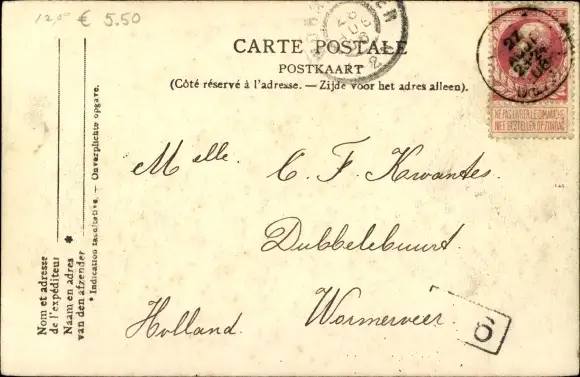 12,00 € 5.50
CARTE POSTALE
POSTKAART
(Côté réservé à l'adresse. — Zijde voor het adres alleen).
NE PAS LIVRER LE DIMANCHE
NIET BESTELLEN OP ZONDAG
Melle. C. F. Kwantes.
Dubbelebuurt
Wormerveer.
Holland.
6
Nom et adresse
de l'expéditeur
Naam en adres *
van den afzender
* Indication facultative. — Onverplichte opgave.